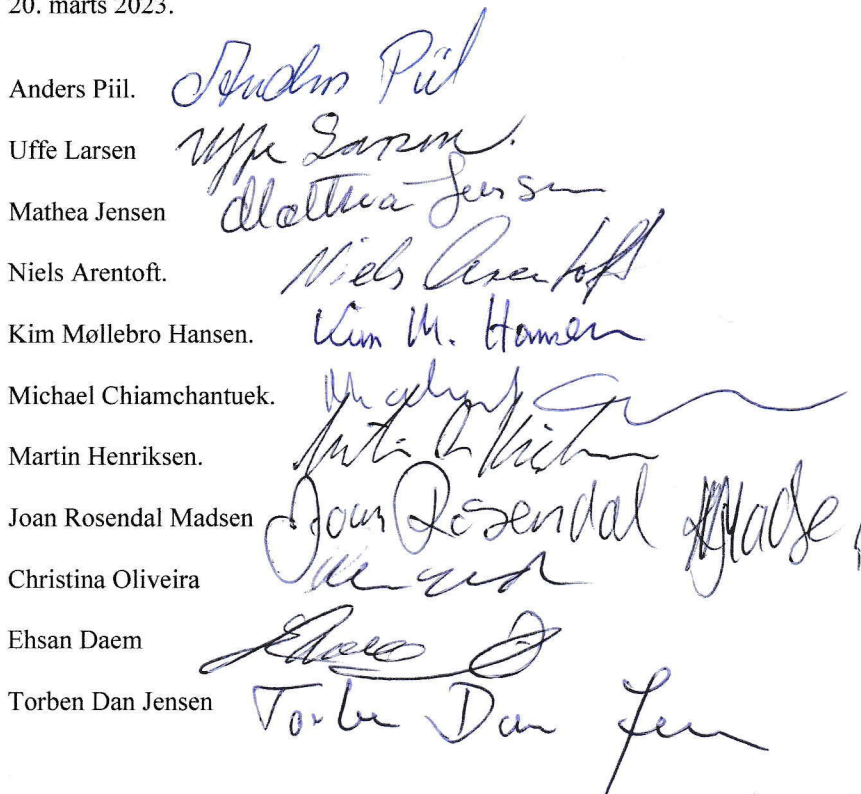 20. marts 2023.
Anders Piil. Anders Piil
Uffe Larsen Uffe Larsen.
Mathea Jensen Mathea Jensen
Niels Arentoft. Niels Arentoft
Kim Møllebro Hansen. Kim M. Hansen
Michael Chiamchantuek.
Martin Henriksen.
Joan Rosendal Madsen Joan Rosendal
Christina Oliveira
Ehsan Daem
Torben Dan Jensen Torben Dan Jensen